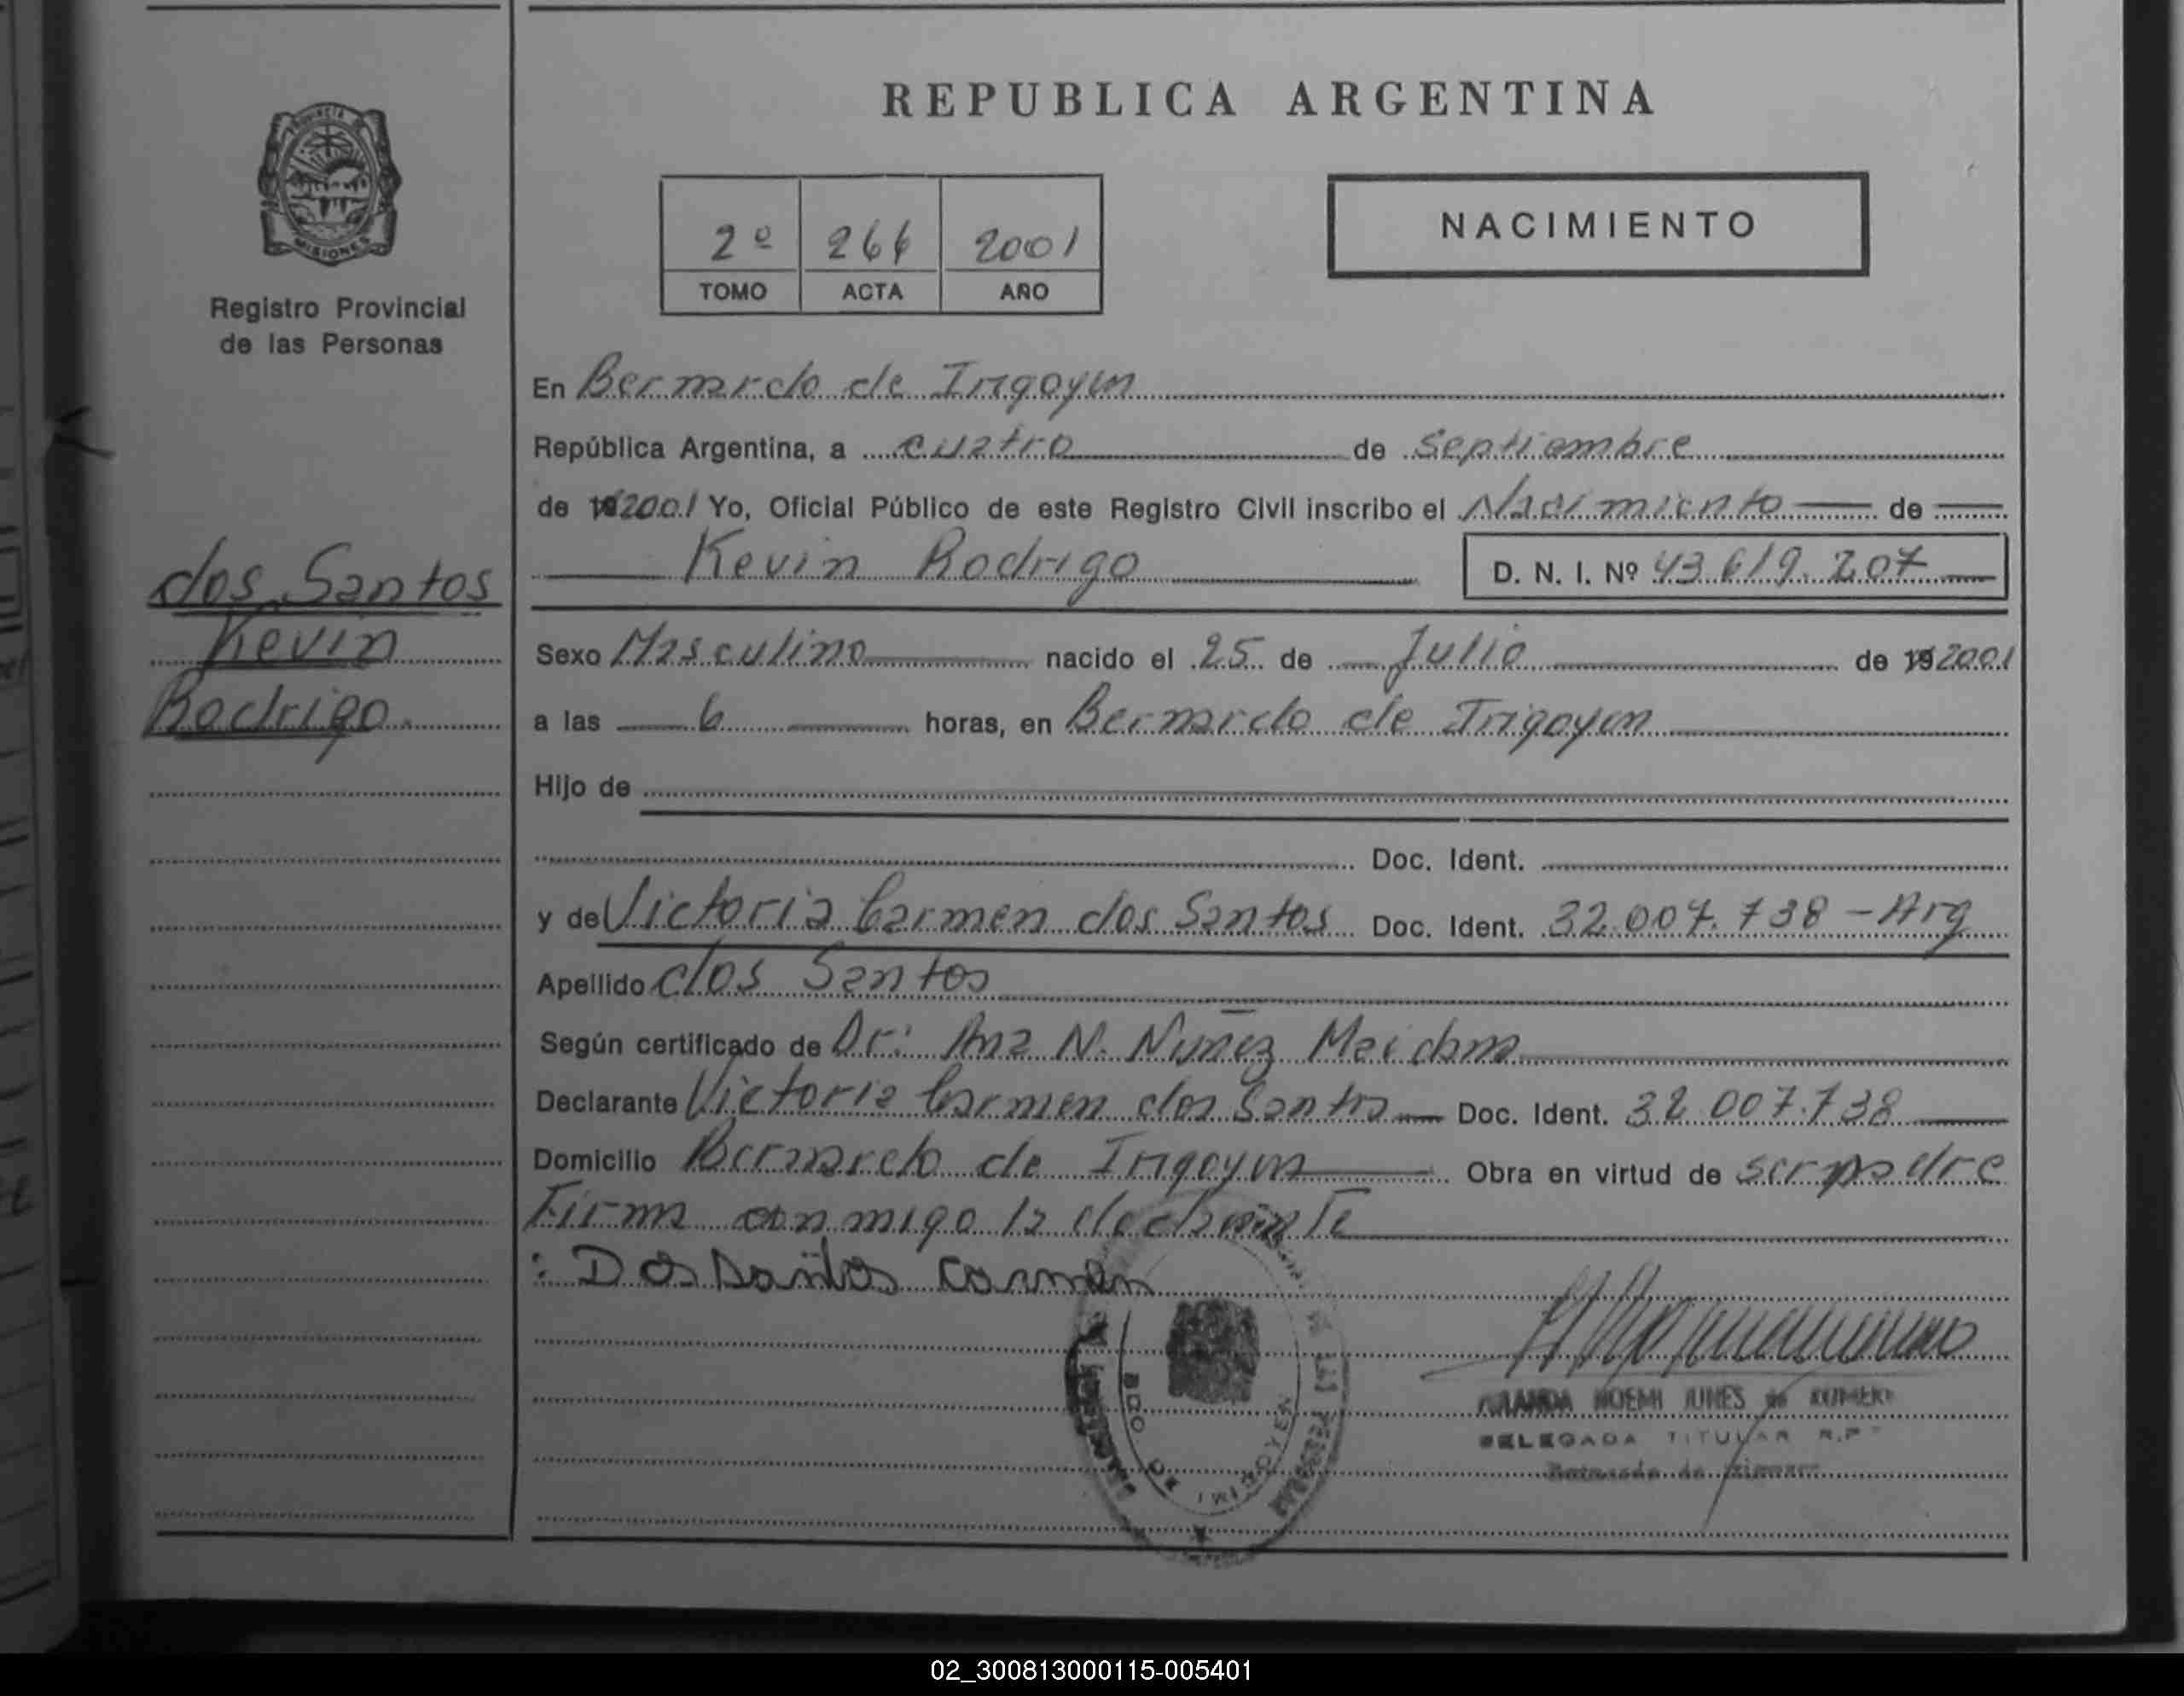 PROVINCIA DE
MISIONES
Registro Provincial
de las Personas
dos Santos
Kevin
Rodrigo.
REPUBLICA ARGENTINA
2º 266 2001
TOMO ACTA AÑO
NACIMIENTO
En Bernardo de Irigoyen
República Argentina, a cuatro de Septiembre
de 2001 Yo, Oficial Público de este Registro Civil inscribo el Nacimiento de
Kevin Rodrigo D. N. I. Nº 43.619.207
Sexo Masculino nacido el 25 de Julio de 2001
a las 6 horas, en Bernardo de Irigoyen
Hijo de
Doc. Ident.
y de Victoria Carmen dos Santos Doc. Ident. 32.007.738 - Arg
Apellido dos Santos
Según certificado de Dr: Ana N. Nuñez
Declarante Victoria Carmen dos Santos Doc. Ident. 32.007.738
Domicilio Bernardo de Irigoyen Obra en virtud de ser madre
Firma conmigo la declarante
: Dos Santos Carmen
NOEMI JUNES de
DELEGADA TITULAR R.P.
BDO DE IRIGOYEN
02_300813000115-005401